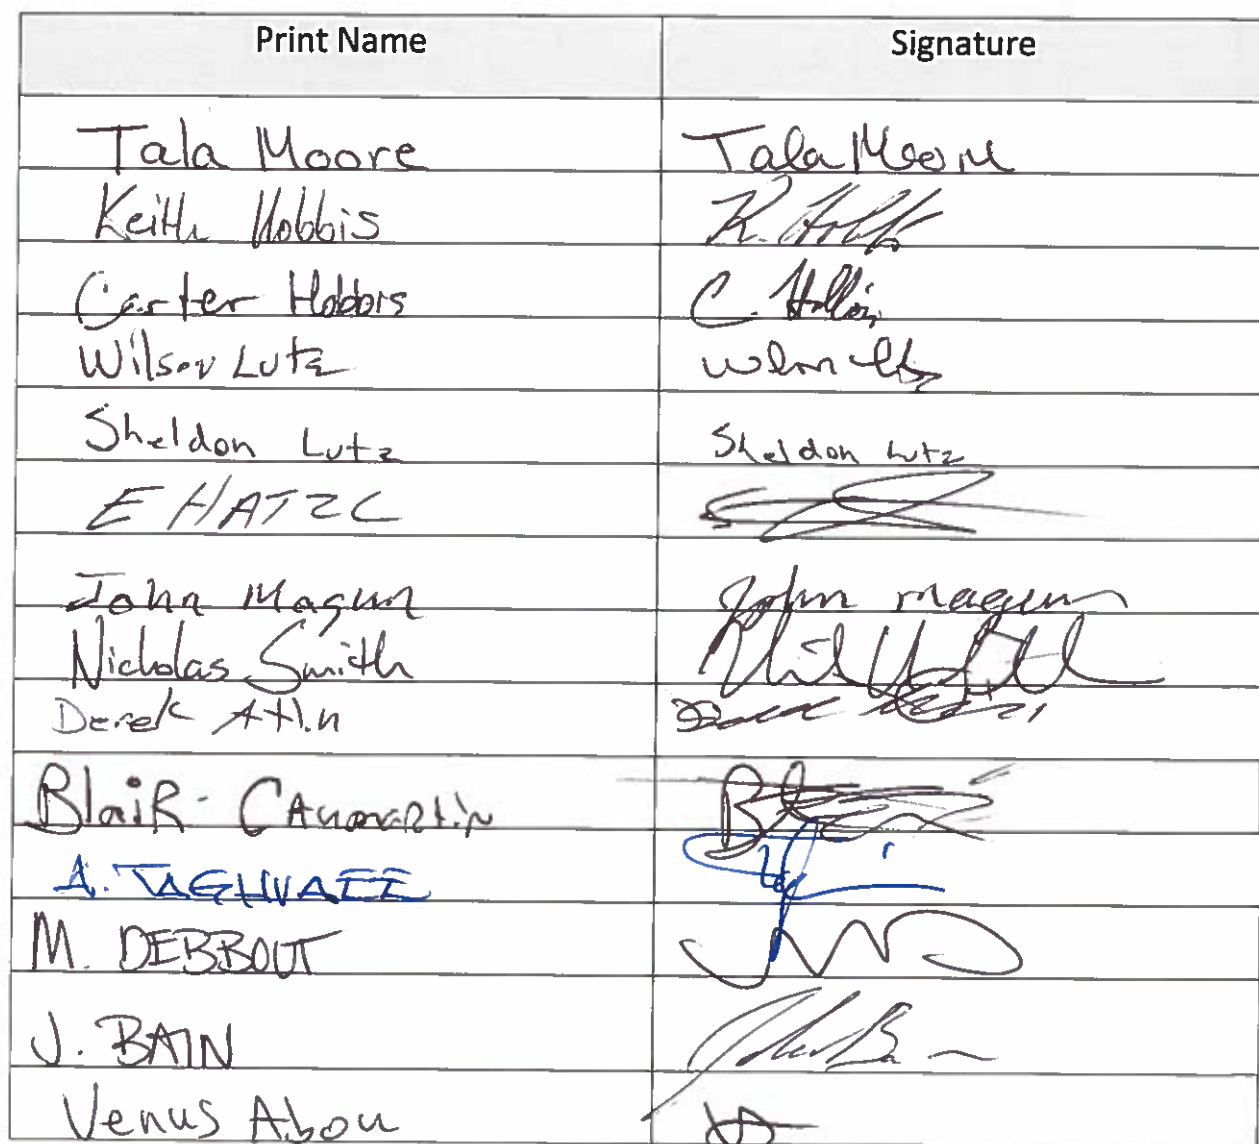 Print Name Signature
Tala Moore Tala Moore
Keith Hobbis K. Hobbis
Carter Hobbis C. Hobbis
Wilson Lutz Wilson Lutz
Sheldon Lutz Sheldon Lutz
E HATZC
John Magun John Magun
Nicholas Smith
Derek Atlin
Blair
A. TAGHVAEE
M. DEBBOUT
J. BAIN
Venus Abou